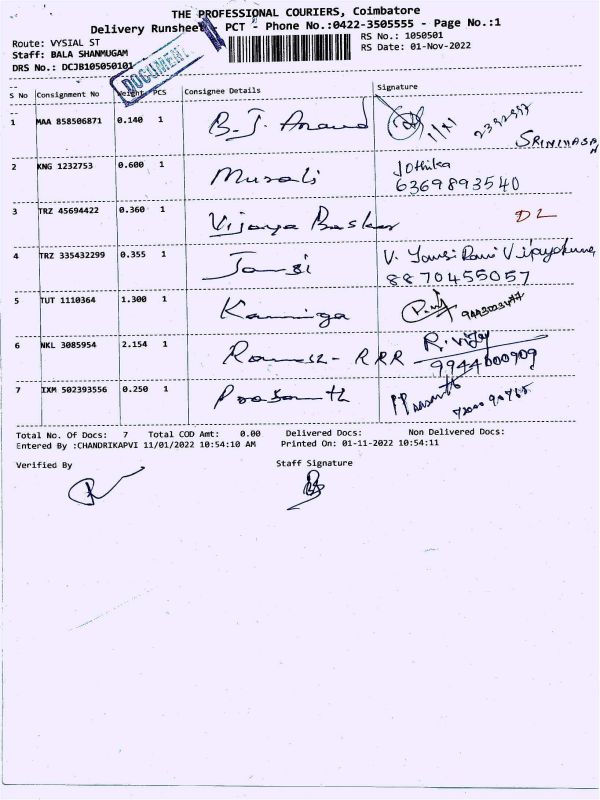 THE PROFESSIONAL COURIERS, Coimbatore
Delivery Runsheet - PCT - Phone No.:0422-3505555 - Page No.:1
Route: VYSIAL ST
RS No.: 1050501
Staff: BALA SHANMUGAM
RS Date: 01-Nov-2022
DRS No.: DCJB105050101
DOCUMENT
S No Consignment No Weight PCS Consignee Details Signature
1 MAA 858506871 0.140 1 B.J. Anand 1/11 SRINIVASAN
2 KNG 1232753 0.600 1 Murali Jothika
6369893540
3 TRZ 45694422 0.360 1 Vijaya Baskar DL
4 TRZ 335432299 0.355 1 Jansi V. Jansi Rani Vijayakumar
8870455057
5 TUT 1110364 1.300 1 Kanniga
6 NKL 3085954 2.154 1 Ramesh - RRR R. Vijay
9944600909
7 IXM 502393556 0.250 1 Prasanth P Prasanth
Total No. Of Docs: 7 Total COD Amt: 0.00 Delivered Docs: Non Delivered Docs:
Entered By :CHANDRIKAPVI 11/01/2022 10:54:10 AM Printed On: 01-11-2022 10:54:11
Verified By Staff Signature